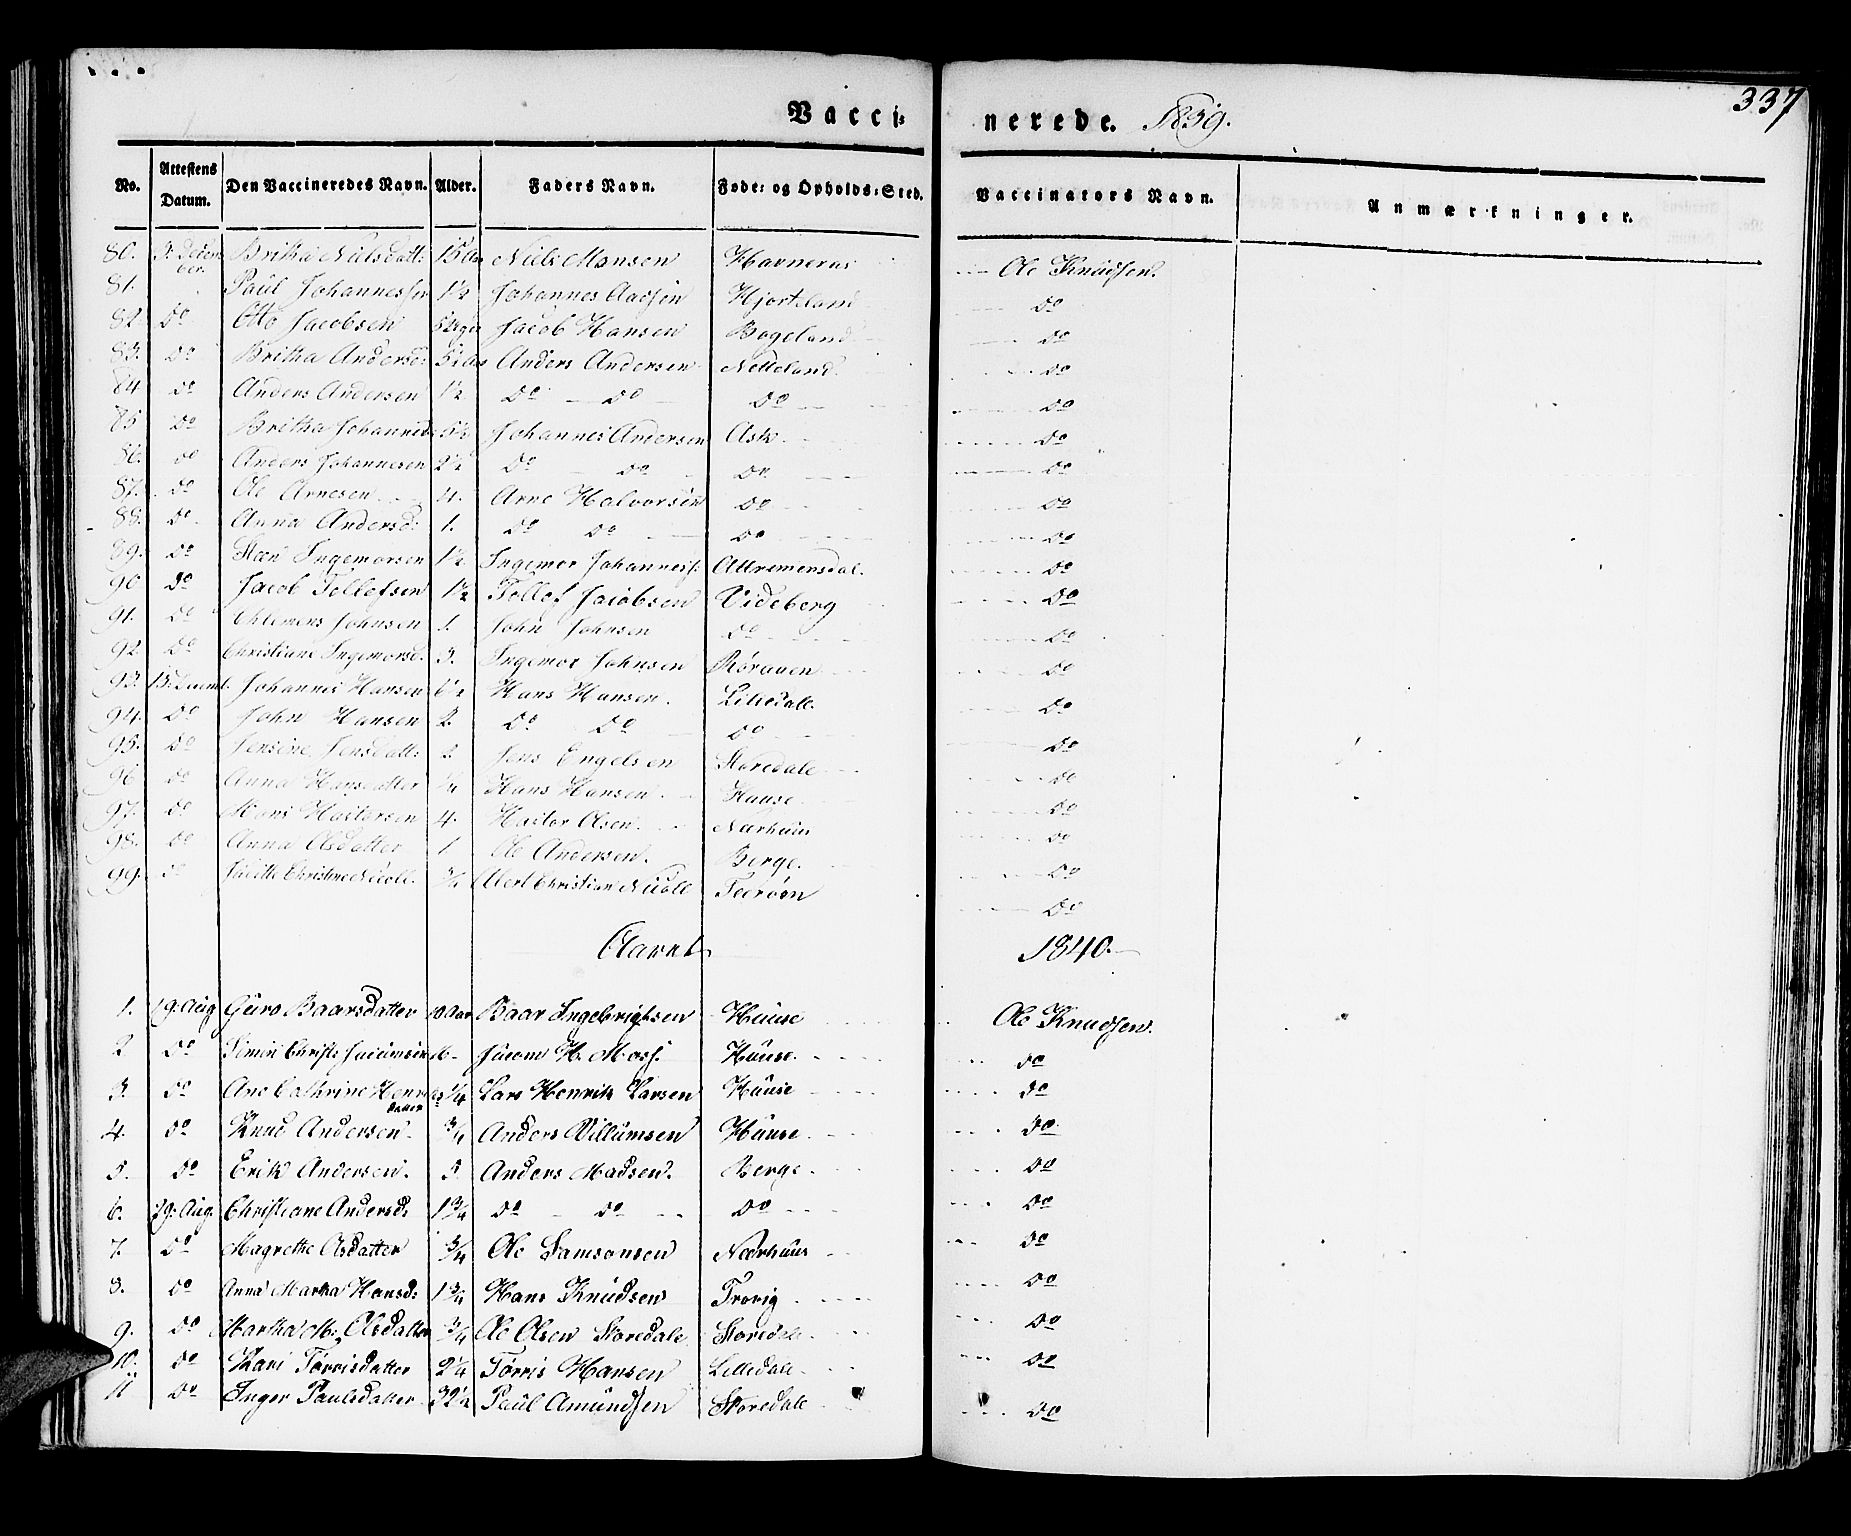 337
Vacci= nerede. 1839.
No. Attestens Datum. Den Vaccineredes Navn. Alder. Faders Navn. Føde= og Opholds=Sted. Vaccinators Navn. Anmærkninger.
80. Britha Nielsdatt: 15 Aar Niels Monsen Havneraas Ole Knudsen.
81. Paul Johannessen 1½ Johannes Hjorteland do
82. do Otto Jacobsen Jacob Hansen Bogeland do
83. do Britha Andersd: Anders Andersen Netteland. do
84 do Anders Andersen 1½ do do do do
85 do Britha Johannesd: 5½ Johannes Andersen Ask do
86. do Anders Johannesen 2½ do do do do
87. do Ole Arnesen 4. Arne Halvorsen do do
88. do Anna Andersd: 1. do do do do
89. do Steen Ingemorsen 1½ Ingemor Johanness: do
90 do Jacob Tollefsen 1½ Tollef Jacobsen Videberg do
91. do Johnsen 1. John Johnsen do do
92 do Christiane Ingemorsd. 3. Ingemor Johnsen do
93. 13. Decemb. Johannes Hansen 6½ Hans Hansen. Lilledale. do
94. do John Hansen 2. do do do do
95. do Jensine Jensdatt: 2 Jens Engelsen Storedale do
96 do Anna Hansdatter Hans Hansen. Hause. do
97. do Mons Hastorsen 4. Hastor Olsen. Nærhuus do
98. do Anna Olsdatter 1 Ole Andersen. Berge. do
99. do Christine Nicoll. ¾ Alert Christian Nicoll Teerøen do
Aaret 1840.
1. 19. Aug Guro Baarsdatter 10 Aar Baar Ingebrigtsen Huuse Ole Knudsen.
2 do Simon Christ: Jacomsen Jacom H. Moss. Huuse. do
3. do Ane Cathrine Henriksdatter ¼ Lars Henrik Larsen Huuse do
4. do Knud Andersen. ¾ Anders Villumsen Huuse. do
5. do Erik Andersen. 5. Anders Madsen. Berge. do
6. 19. Aug. Christiane Andersd: 1¾ do do do do
7. do Magrethe Olsdatter ¾ Ole Samsonsen Nærhuus do
8. do Anna Martha Hansd: 1¾ Hans Knudsen Trovig do
9. do Martha M: Olsdatter ¾ Ole Olsen Storedale Storedale do
10. do Kari Tørrisdatter 2¼ Tørris Hansen Lilledale. do
11 do Inger Paulsdatter Paul Amundsen Storedale do